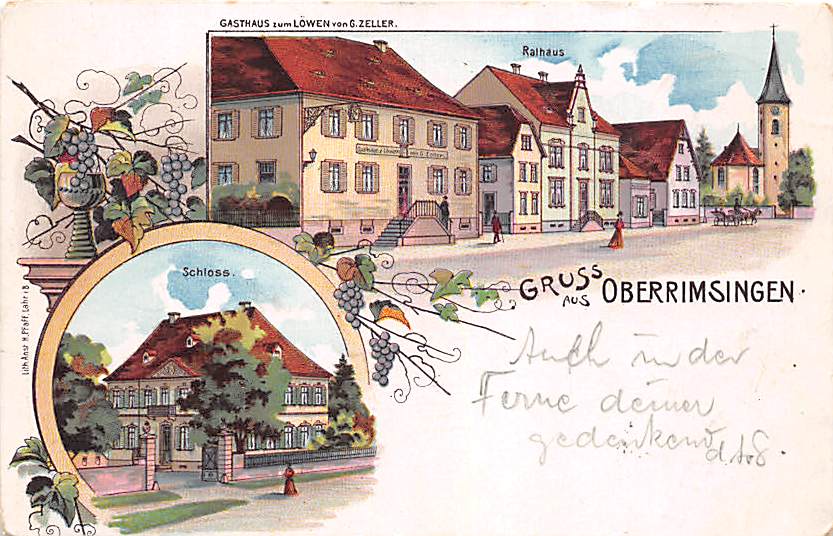 GASTHAUS zum LÖWEN von G. ZELLER.
Rathaus
Gasthaus z. Löwen von G. Zeller
Schloss.
GRUSS
AUS OBERRIMSINGEN.
Lith. Anst. H. Pfaff, Lahr i. B.
Auch in der
Ferne deiner
gedenkend